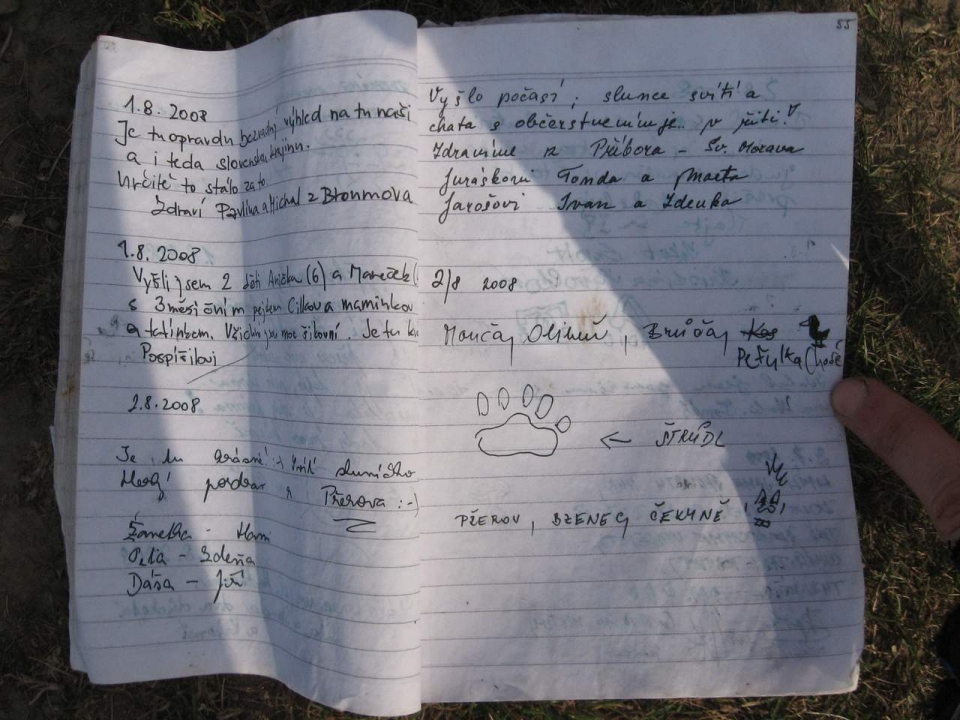 1.8.2008
Je tu opravdu bezvadný výhled na tu naší
a i teda slovenskou krajinu.
Určitě to stálo za to.
Zdraví Pavlína a Michal z Broumova
1.8.2008
Vyšli jsem 2 děti Anička (6) a Mareček
s 3měsíčním pejskem Cilkou a maminkou
a tatínkem. Všichni jsme moc šikovní. Je tu
Pospíšilovi
2.8.2008
Je tu krásně :-) svítí sluníčko
Hezký pozdrav z Přerova :-)
Žanetka - 
Peťa - Zdeňa
Dáša - Jiří
55
Vyšlo počasí, slunce svítí a
chata s občerstvením je
Zdravíme z Příbora - Sv. Morava
Juráškovi Tonda a Marta
Jarošovi Ivan a Zdenka
2/8 2008
Petřulka
← ŠTRŮDL
PŘEROV, BZENEC, ČEKYNĚ